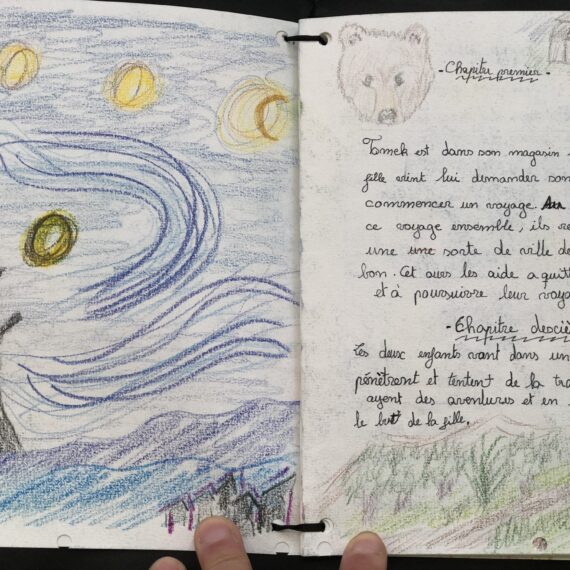 - Chapitre premier -
Tomek est dans son magasin
fille vint lui demander son
commencer un voyage. Au
ce voyage ensemble, ils re
une une sorte de ville de
bon. Cet ours les aide a quitt
et à poursuivre leur voya
- Chapitre deuxiè
Les deux enfants vont dans un
pénètrent et tentent de la tra
ayent des aventures et en
le but de la fille.